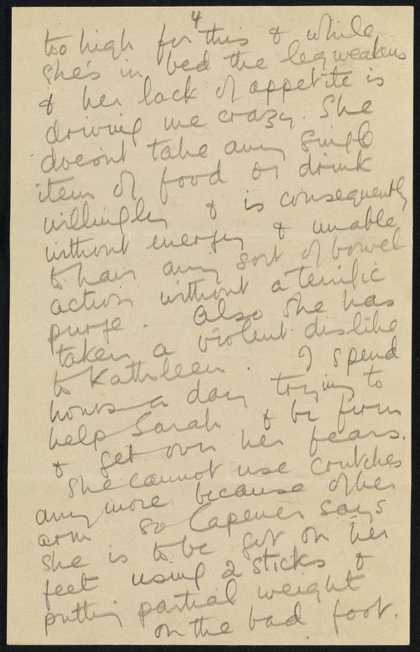 4
too high for this & while
she's in bed the leg weakens
& her lack of appetite is
driving me crazy. She
doesn't take any single
item of food or drink
willingly & is consequently
without energy & unable
to have any sort of bowel
action without a terrific
purge. Also she has
taken a violent dislike
to Kathleen. I spend
hours a day trying to
help Sarah & be firm
& get over her fears.
She cannot use crutches
any more because of her
arm so Capener says
she is to be got on her
feet using 2 sticks &
putting partial weight
on the bad foot.